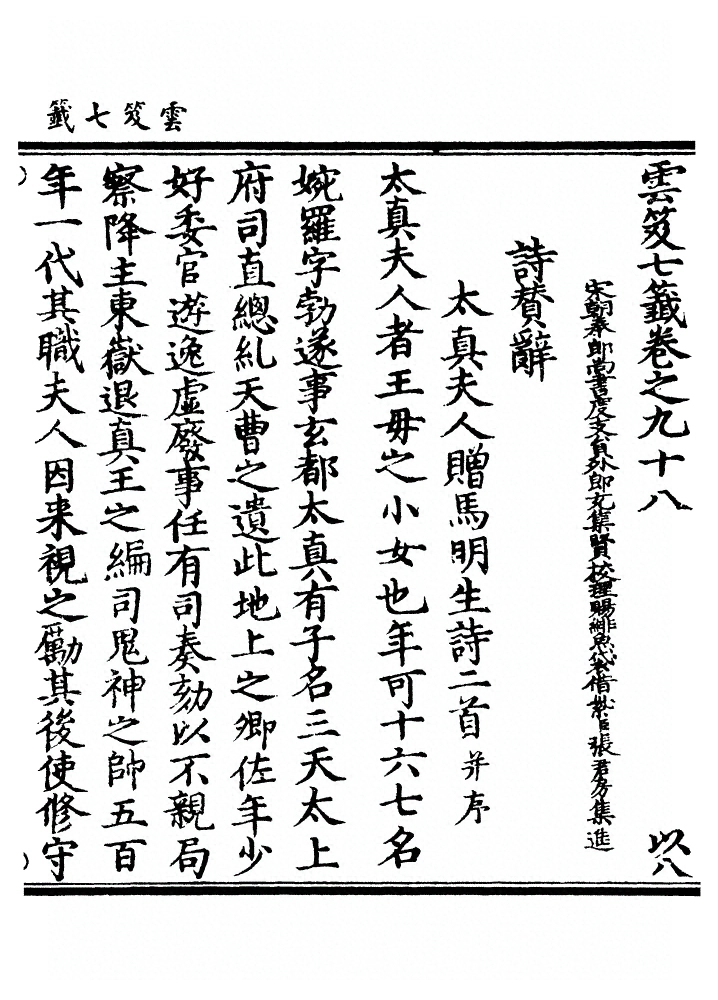 雲笈七籤
雲笈七籤卷之九十八 以八
宋朝奉郎尚書度支員外郎充集賢校理賜緋魚袋借紫臣張君房集進
詩贊辭
太真夫人贈馬明生詩二首并序
太真夫人者王毋之小女也年可十六七名
婉羅字勃遂事玄都太真有子名三天太上
府司直總糺天曹之遺此地上之卿佐年少
好委官遊逸虛廢事任有司奏劾以不親局
察降主東嶽退真王之編司鬼神之帥五百
年一代其職夫人因来視之勵其後使修守